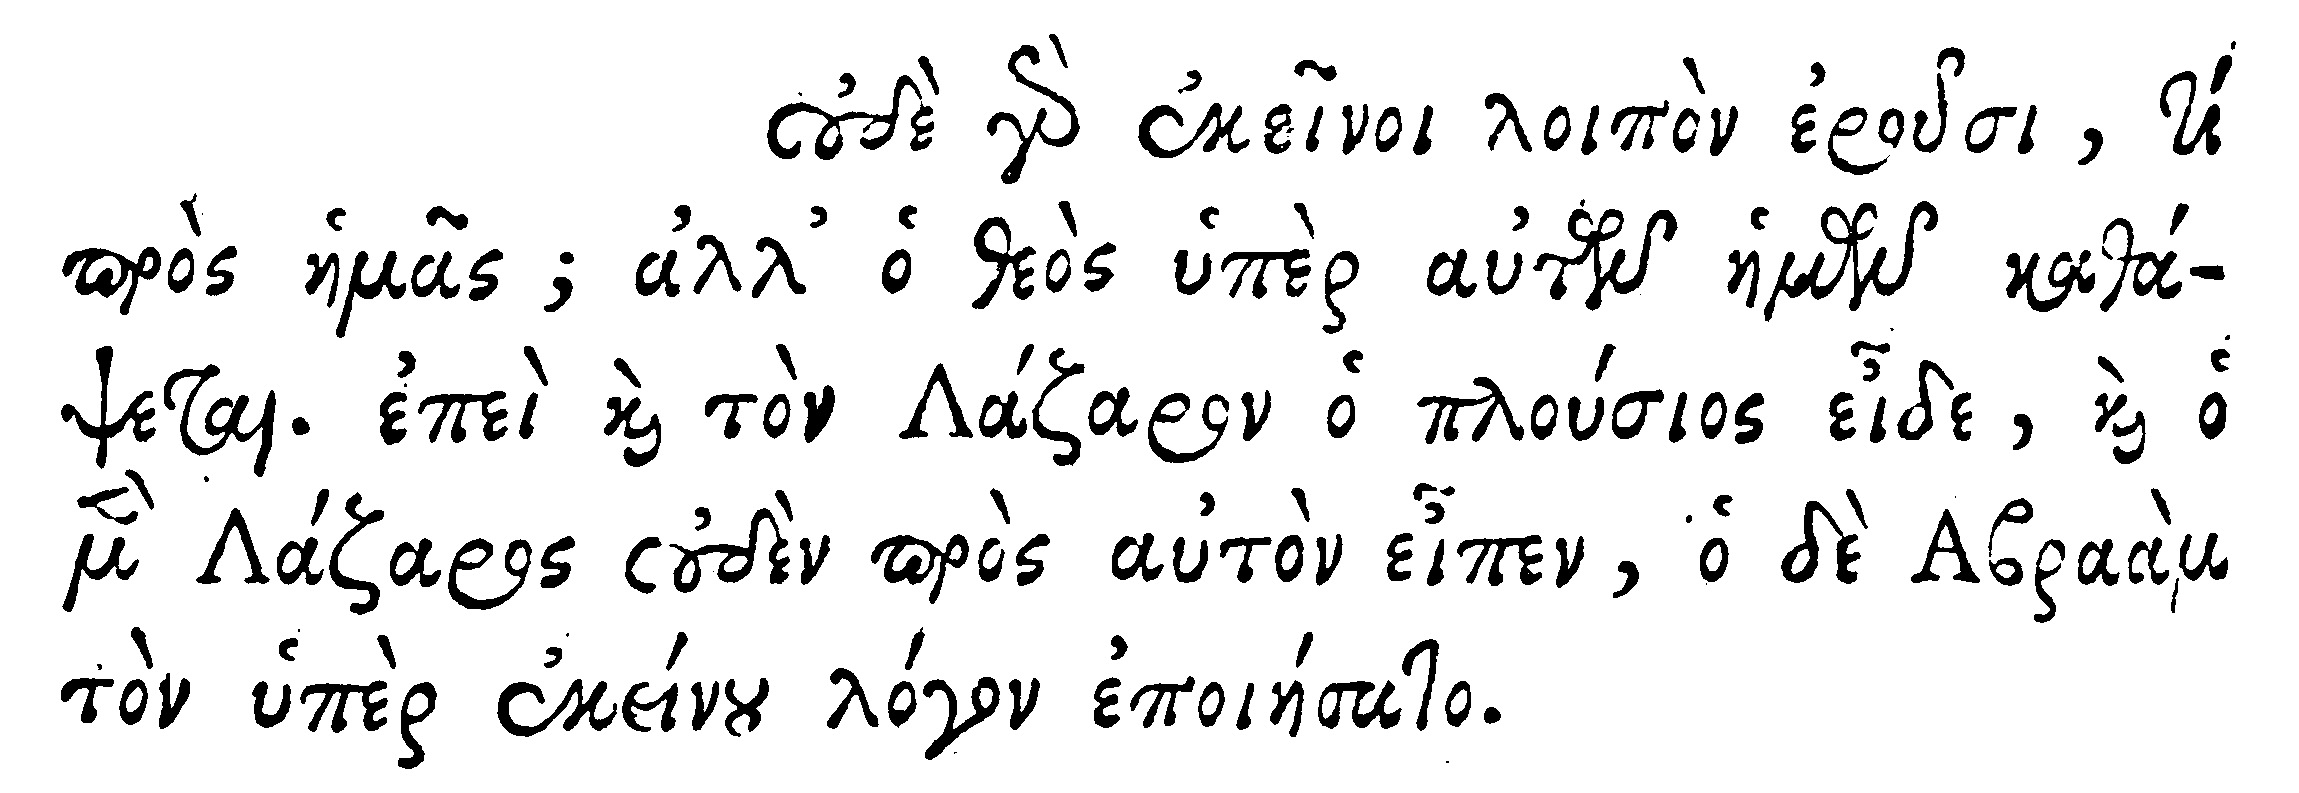 οὐδὲ γὰρ ἐκεῖνοι λοιπὸν ἐροῦσι, τί
πρὸς ἡμᾶς; ἀλλ' ὁ θεὸς ὑπὲρ αὐτῶν ἡμῶν καθά-
ψεται. ἐπεὶ καὶ τὸν Λάζαρον ὁ πλούσιος εἶδε, καὶ ὁ
μὲν Λάζαρος οὐδὲν πρὸς αὐτὸν εἶπεν, ὁ δὲ Αβραὰμ
τὸν ὑπὲρ ἐκείνου λόγον ἐποιήσατο.